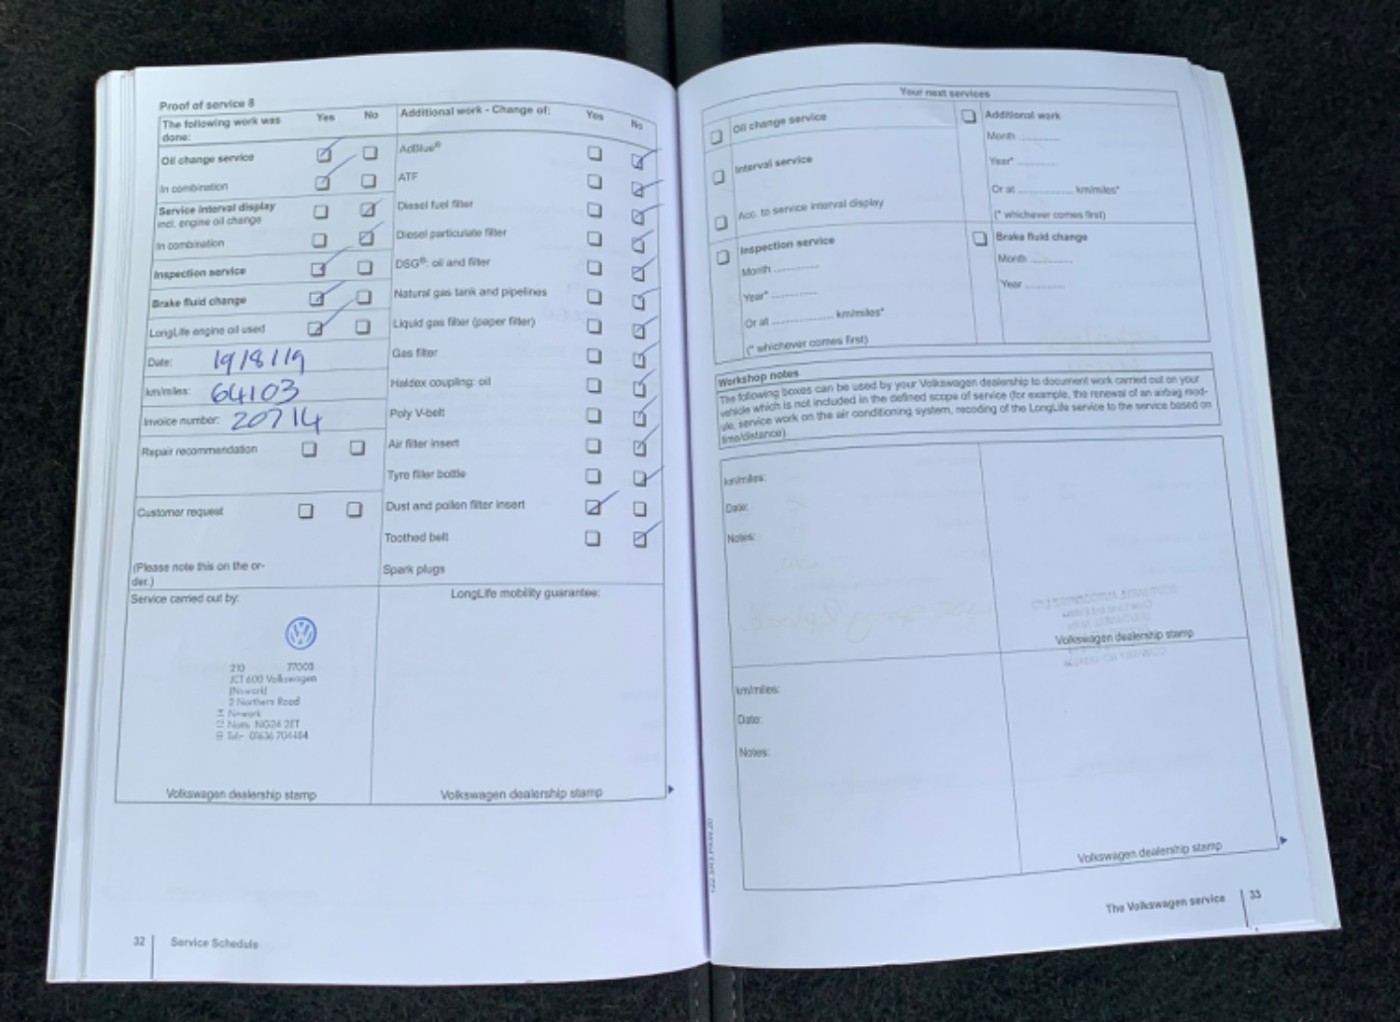 Proof of service 8
The following work was done:
Yes
No
Oil change service
In combination
Service interval display
incl. engine oil change
In combination
Inspection service
Brake fluid change
LongLife engine oil used
Date: 19/8/19
km/miles: 64103
Invoice number: 20714
Repair recommendation
Customer request
(Please note this on the or-
der.)
Additional work - Change of:
Yes
No
AdBlue®
ATF
Diesel fuel filter
Diesel particulate filter
DSG®: oil and filter
Natural gas tank and pipelines
Liquid gas filter (paper filter)
Gas filter
Haldex coupling: oil
Poly V-belt
Air filter insert
Tyre filler bottle
Dust and pollen filter insert
Toothed belt
Spark plugs
Service carried out by:
210 77003
JCT 600 Volkswagen
(Newark)
2 Northern Road
Newark
Notts NG24 2ET
Tel:- 01636 704484
Volkswagen dealership stamp
LongLife mobility guarantee:
Volkswagen dealership stamp
32
Service Schedule
Your next services
Oil change service
Interval service
Acc. to service interval display
Inspection service
Month ............
Year* ............
Or at ................ km/miles*
(* whichever comes first)
Additional work
Month ...........
Year* ...........
Or at ............... km/miles*
(* whichever comes first)
Brake fluid change
Month ...........
Year ...........
Workshop notes
The following boxes can be used by your Volkswagen dealership to document work carried out on your
vehicle which is not included in the defined scope of service (for example, the renewal of an airbag mod-
ule, service work on the air conditioning system, recoding of the LongLife service to the service based on
time/distance).
km/miles:
Date:
Notes:
Volkswagen dealership stamp
km/miles:
Date:
Notes:
Volkswagen dealership stamp
The Volkswagen service
33